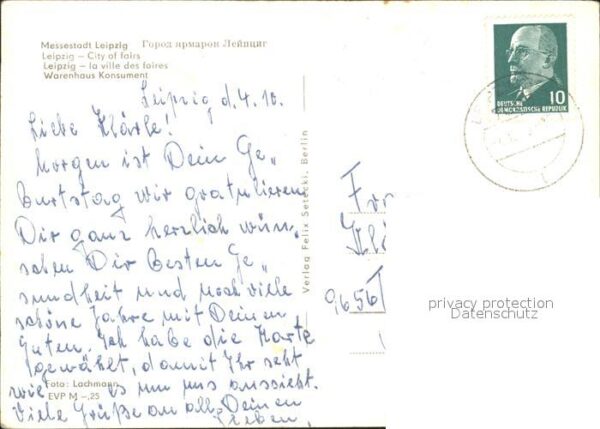 Messestadt Leipzig Город ярмарок Лейпциг
Leipzig – City of fairs
Leipzig – la ville des foires
Warenhaus Konsument
Leipzig d. 4. 10.
Liebe Klärle!
Morgen ist Dein Ge„
burtstag wir gratulieren
Dir ganz herzlich wün„
schen Dir besten Ge„
sundheit und noch viele
schöne Jahre mit Deinen
Guten. Ich habe die Karte
gewählt, damit Ihr seht
wie es um uns aussieht.
Viele Grüße an all Deinen
Lieben,
Foto: Lachmann
EVP M –,25
Verlag Felix Setecki, Berlin
10
DEUTSCHE
DEMOKRATISCHE REPUBLIK
9656
privacy protection
Datenschutz